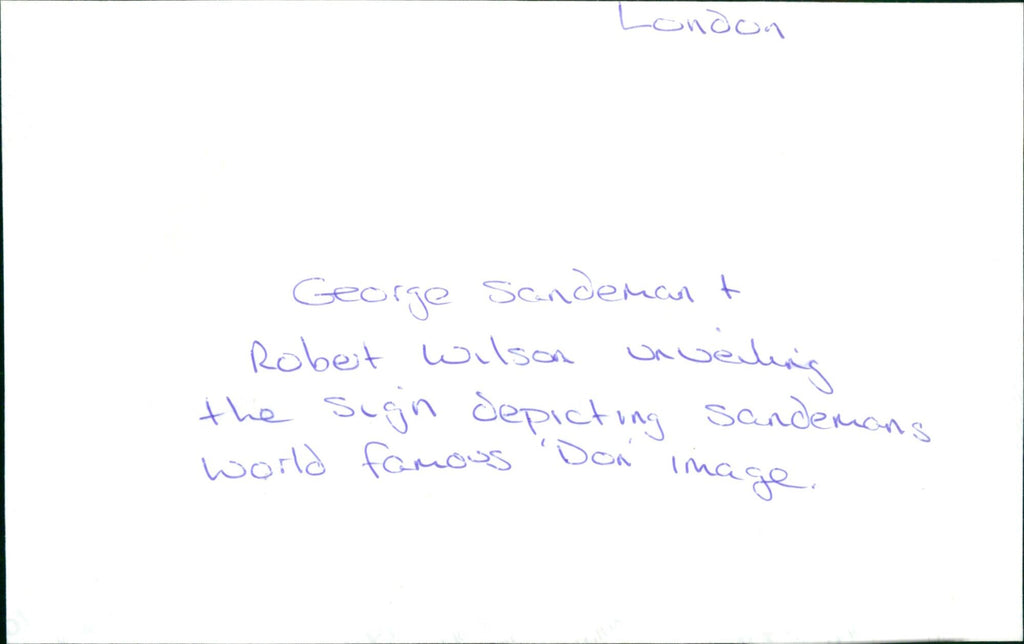 London
George Sandeman +
Robert Wilson unveiling
the sign depicting Sandemans
world famous 'Don' image.